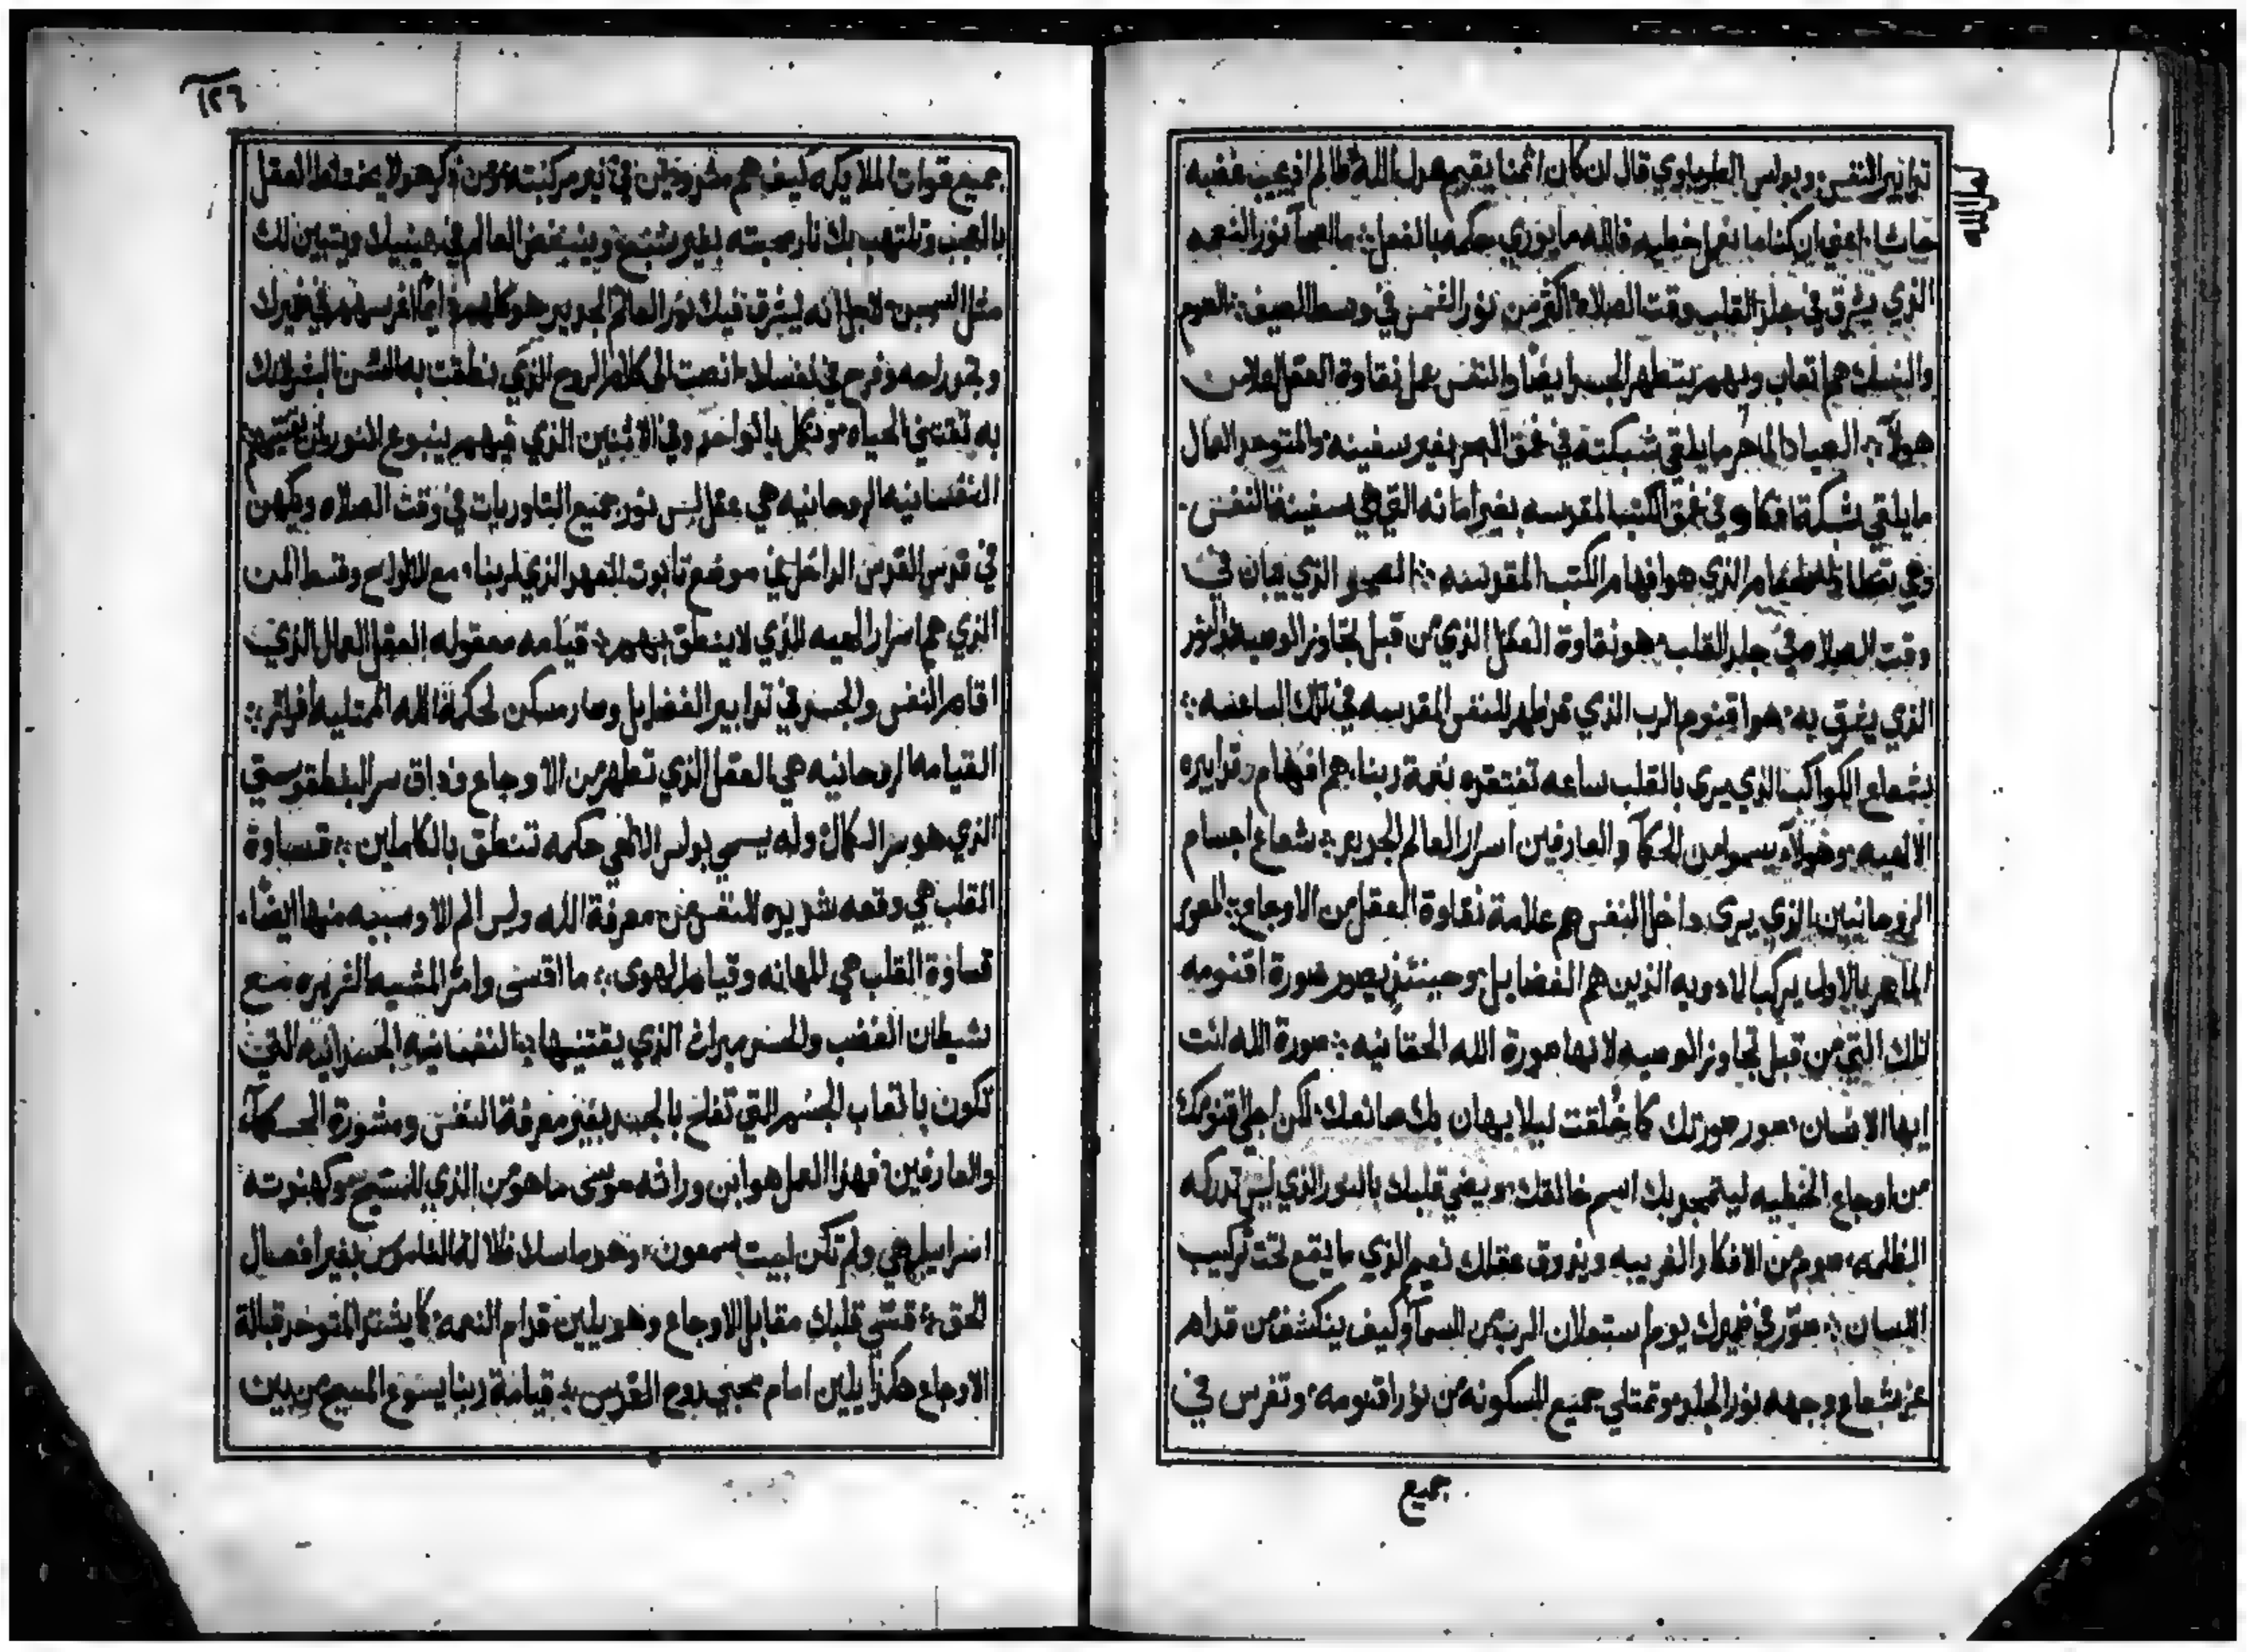 تدابير النفس وبولس الطرباوي قال ان كان اثمنا يقيم عدل الله ظالم اذ يجيب غضبه
حاشا اعني ان كنا ما نعمل خطيه فالله ما يوري حكمه بالفعل ما السما نور النعمه
الذي يشرق في جلد القلب وقت الصلاه اكثر من نور الشمس في وسط الصيف الصوم
والنسك هم اتعاب وبهم يتطهر الجسد ايضا والنفس عمل نقاوة العقل
هولاء الصياد الماهر ما يلقي شبكته في عمق البحر بغير سفينه والمتوحد العمال
ما يلقي شبكة افكاره في عمق الكتب المقدسه بغير امانه التي هي سفينة النفس
وهي الطعام الذي هو افهام الكتب المقدسه الذي يبان في
وقت الصلاه في جلد القلب هو نقاوة العقل الذي من قبل تجاوز الوصيه النور
الذي يشرق به هو اقنوم الرب الذي قد ظهر للنفس المقدسه في تلك الساعه
شعاع الكواكب الذي يرى بالقلب ساعه تفتقده نعمة ربنا هم افهام تدابيره
الالهيه وهولاء يسموا من الحكما والعارفين اسرار العالم الجديد شعاع اجسام
الروحانيين الذي يرى داخل النفس هم علامة نقاوة العقل من الاوجاع المصور
الماهر بالاول يركب الادويه الذين هم الفضايل وحينئذ يصور صورة اقنومه
تلك التي من قبل تجاوز الوصيه لانها صورة الله الحقانيه صورة الله انت
ايها الانسان صور صورتك كما خلقت ليلا يهان بك صانعك لكن اجلي اقنومك
من اوجاع الخطيه ليتمجد بك اسم خالقك ويضي قلبك بالنور الذي ليس تدركه
الظلمه صوم من الافكار الغريبه ويذوق عقلك نعيم الذي ما يقع تحت تركيب
اللسان صور في ضميرك يوم استعلان الرب من السما وكيف ينكشف من قدام
عز شعاع وجهه نور الجلد وتمتلي جميع المسكونه من نور اقنومه وتفرس في
جميع
١٢٦
جميع قوات الملايكه كيف هم مفروزين في مركبته ومن ذكر هولاء يختطف العقل
بالعجب وتلتهب بك نار محبته بغير شبع وينبغض العالم في عينيك ويتبين لك
مثل السجن لاجل انه ليشرق فيك نور العالم الجديد هو كلهم ايما اغرسهم في ضميرك
وتجد راحه وفرح في نفسك انصت الى كلام الروح الذي نطقت به السن البشر لانك
به تقتني الحياه وتكمل بالواحد وفي الاثنين الذي فيهم ينبوع النور
النفسانيه الروحانيه هي عقل لبس نور جميع الثاوريات في وقت الصلاه ويكهن
في قدس القدس الداخل في موضع تابوت العهد الذي لربنا مع الالواح وقسط المن
الذي هم اسرار الهيه الذي لا ينطق بهم قيامه معقوله العقل العمال الذي
اقام النفس والجسد في تدابير الفضايل وصار مسكن لحكمة الله الممتليه افراز
القيامه الروحانيه هي العقل الذي تطهر من الاوجاع وذاق سر البنطقوستي
الذي هو سر الكمال وله يسمي بولس الالهي حكمه تنطق بالكاملين قساوة
القلب هي وقعه شديده للنفس من معرفة الله وليس الم الا وسببه منها ايضا
قساوة القلب هي المهانه وقيام الهوى ما اقسى وامر المشيه الشريره مع
شيطان الغضب والحسد ميراث الذي يقتنيها النفسانيه الجسدانيه التي
تكون باتعاب الجسد التي تفلح بالجسد بغير معرفة النفس ومشورة الحكما
والعارفين فهذا العمل هو ابن وراثه موسى ما هو من الذي للمسيح وكهنوته
اسراييل هي ولم تكن لبيت سمعون وهو ماسك ظلالة الناموس بغير افصال
الحق قسي قلبك مقابل الاوجاع وهو يلين قدام النعمه كما يشتد المتوحد قبالة
الاوجاع هكذا يلين امام محبي روح القدس قيامة ربنا يسوع المسيح من بين